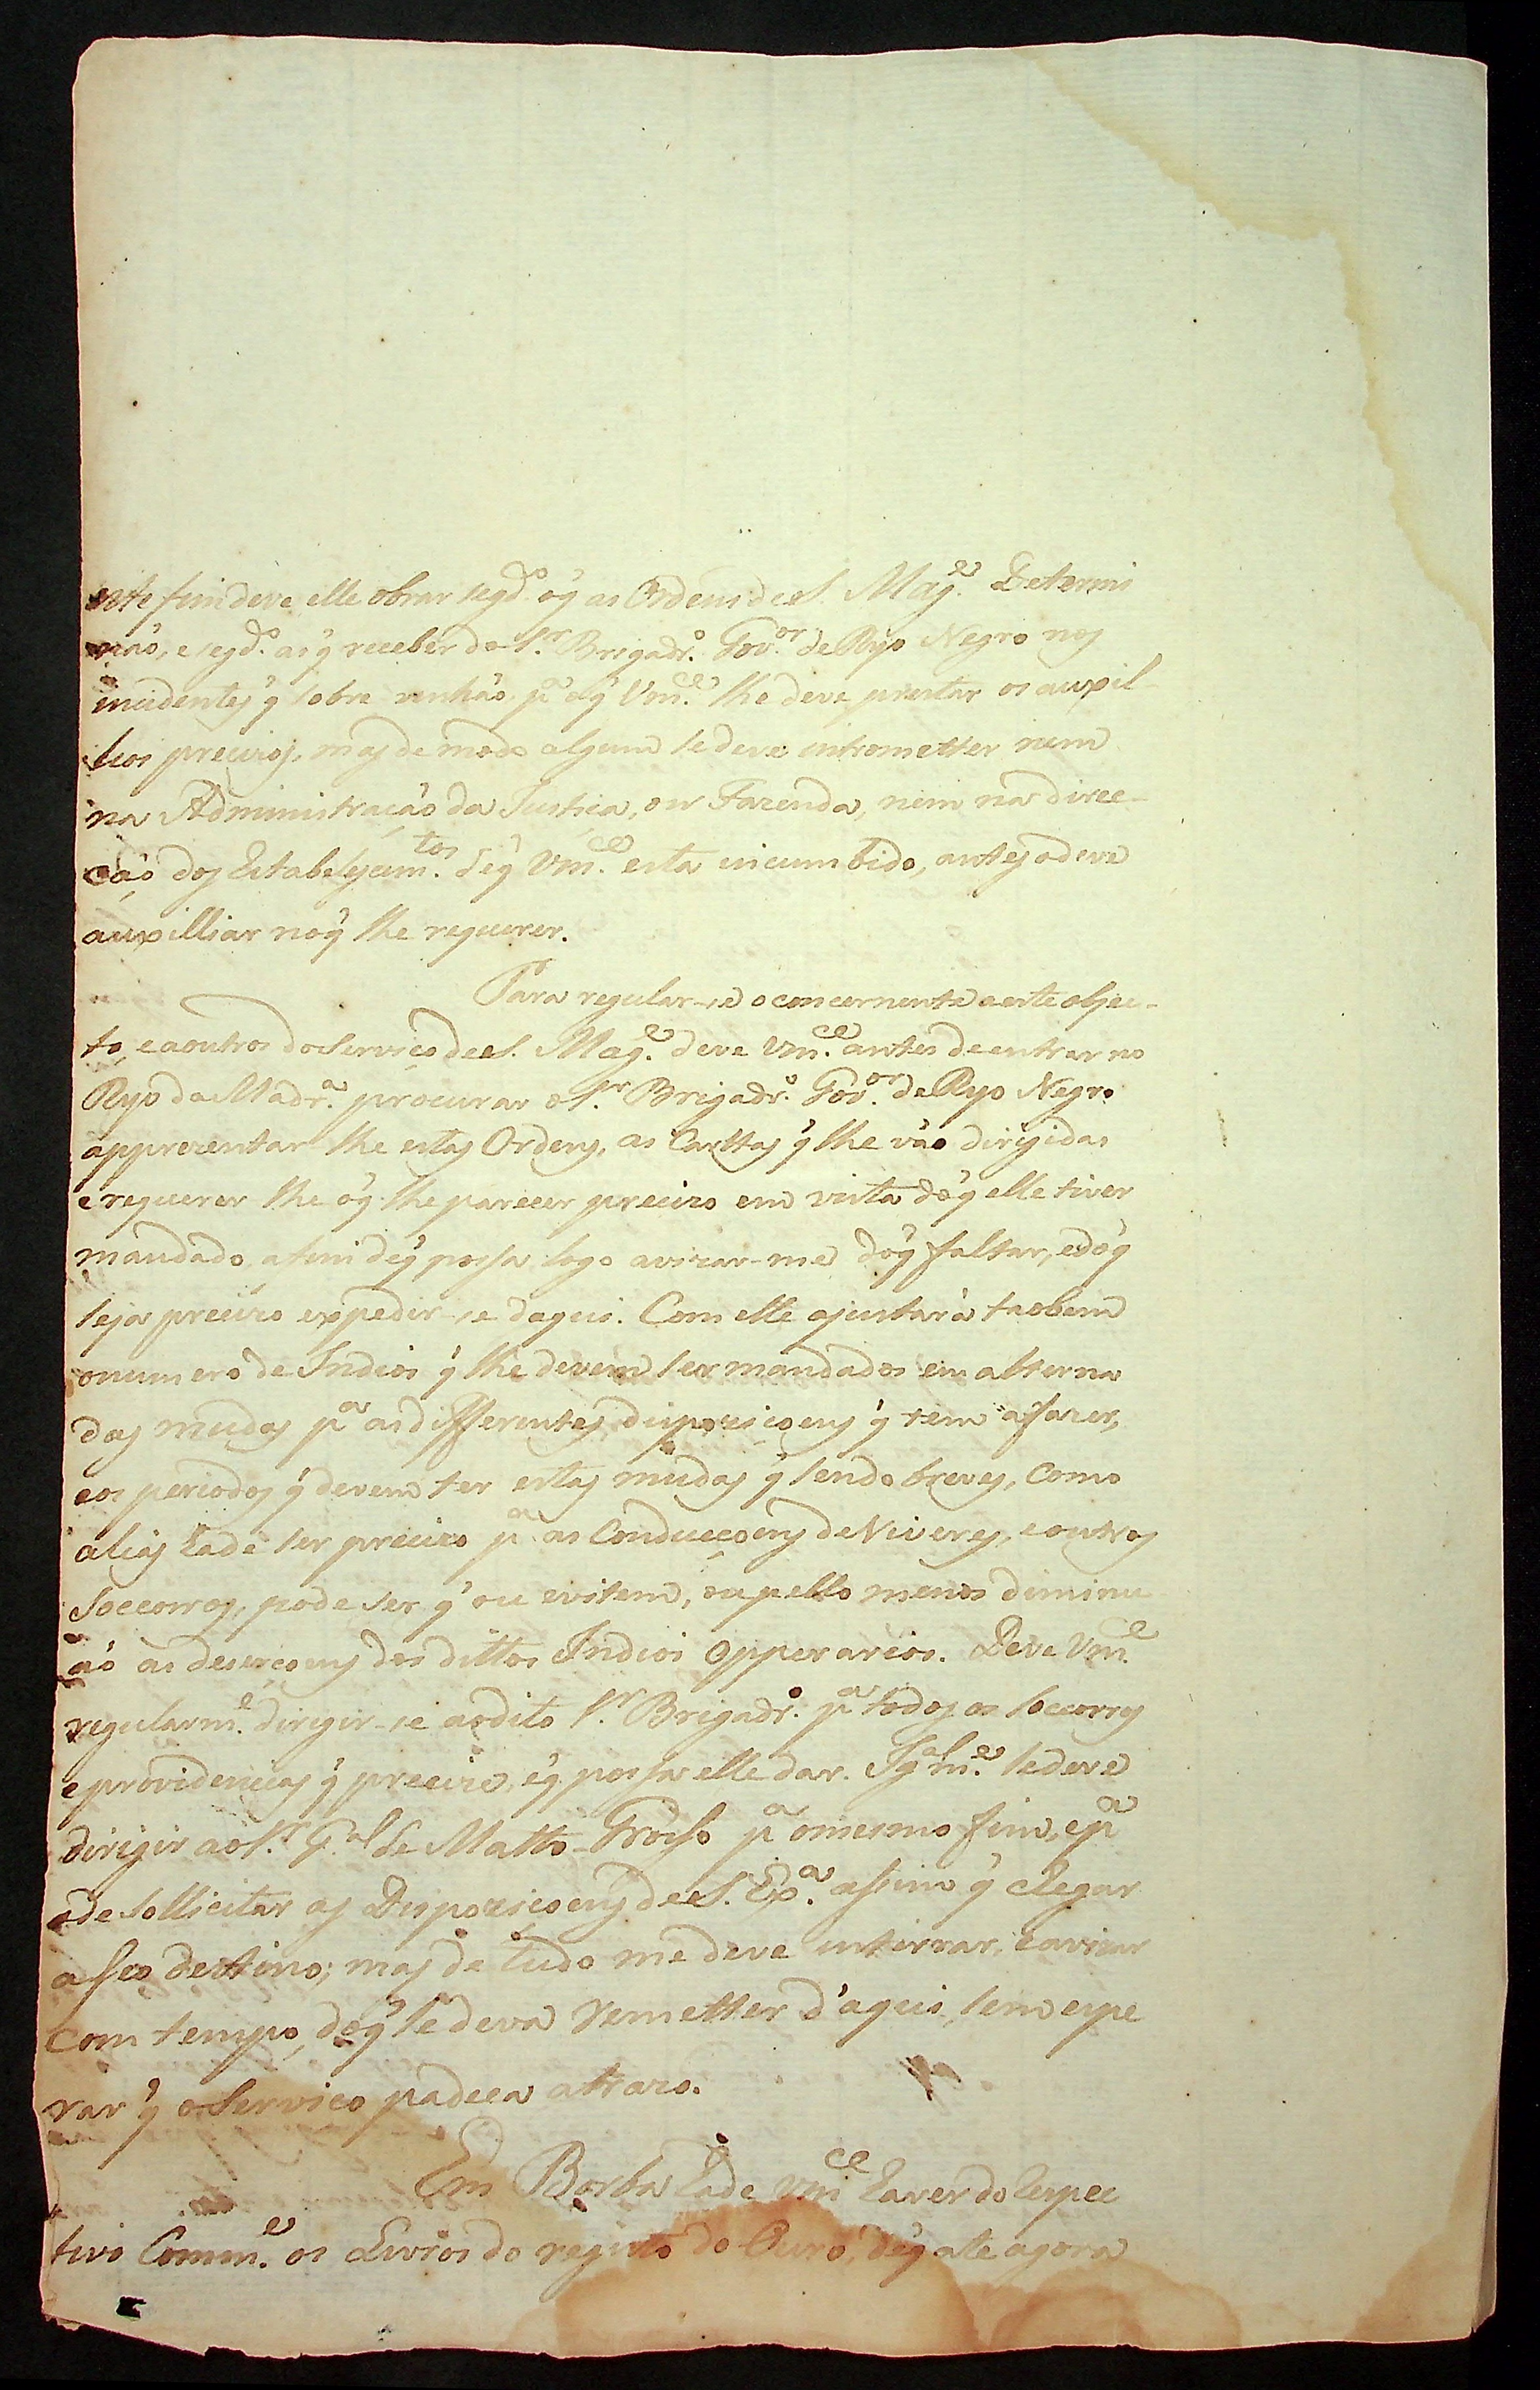 este fim deve elle obrar segd.º o q̃ as Ordens de S. Mag.e Determi
não, e segd.º as q̃ receber do S.r Brigadr.º Gov.or do Ryo Negro nos
incidentes q̃ sobre venhão p.ª o q̃ Vm.ce lhe deve prestar os auxil-
lios precizos, mas de modo algum se deve intrometter nem
na Administração da Justiça, ou Fazenda, nem na direc-
ção dos Estabelycim.tos de q̃ Vm.ce esta incumbido, antes o deve
auxilliar no q̃ lhe requerer.
Para regular-se o concernente a este objec-
to, e a outros do Serviço de S. Mag.e deve Vm.ce antes de entrar no
Ryo da Madr.ª procurar o S.r Brigadr.º Gov.or do Ryo Negro
apprezentar lhe estas Ordens, as Carttas q̃ lhe vão dirigidas
e requerer lhe o q̃ lhe parecer precizo em vista do q̃ elle tiver
mandado, afim de q̃ possa logo avizar-me do q̃ faltar, e do q̃
seja precizo expedir-se daqui. Com elle ajustará taobem
o numero de Indios q̃ lhe devem ser mandados em alterna
das mudas p.ª as differentes dispoziçoens q̃ tem a fazer,
e os periodos q̃ devem ter estas mudas q̃ sendo breves, como
alias hade ser precizo p.ª as Conducçoens de Viveres, e outros
Soccorros, pode ser q̃ ou evitem, ou pello menos diminu
ão as deserçoens dos dittos Indios opperarios. Deve Vm.ce
regularm.e dirigir-se ao dito S.r Brigadr.º p.ª todos os soccorros
e providencias q̃ precize, e q̃ possa elle dar. Igalm.e se deve
dirigir ao S.r G.al de Matto-Grosso p.ª o mesmo fim, e p.ª
o de sollicitar as Dispoziçoens de S. Ex.ª assim q̃ chegar
a seo destino; mas de tudo me deve inteirar, e avizar
com tempo, do q̃ se deva remetter d'aqui, sem espe
rar q̃ o Serviço padeca atrazo.
Em Borba hade Vm.ce haver do respec
tivo Comm.e os Livros do registo do Ouro, de q̃ ate agora